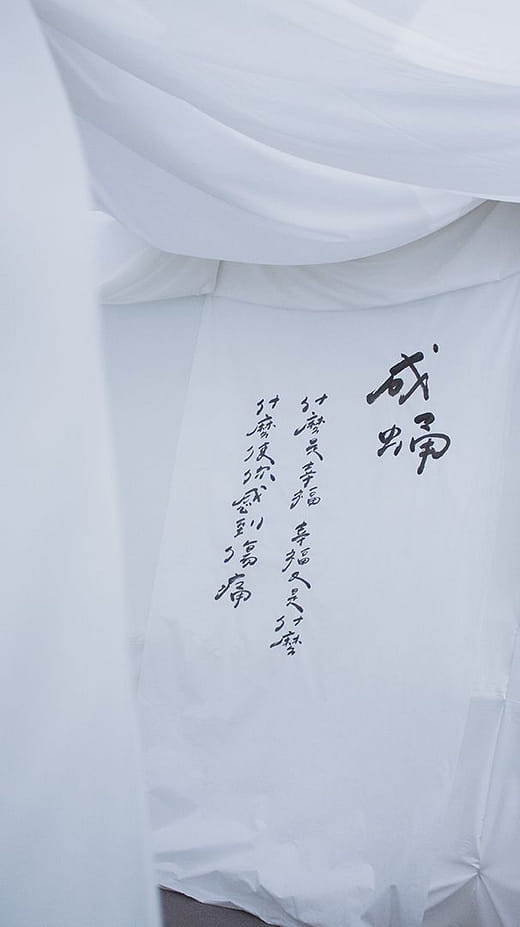 成蛹
什麼是幸福 幸福又是什麼
什麼使你感到傷痛